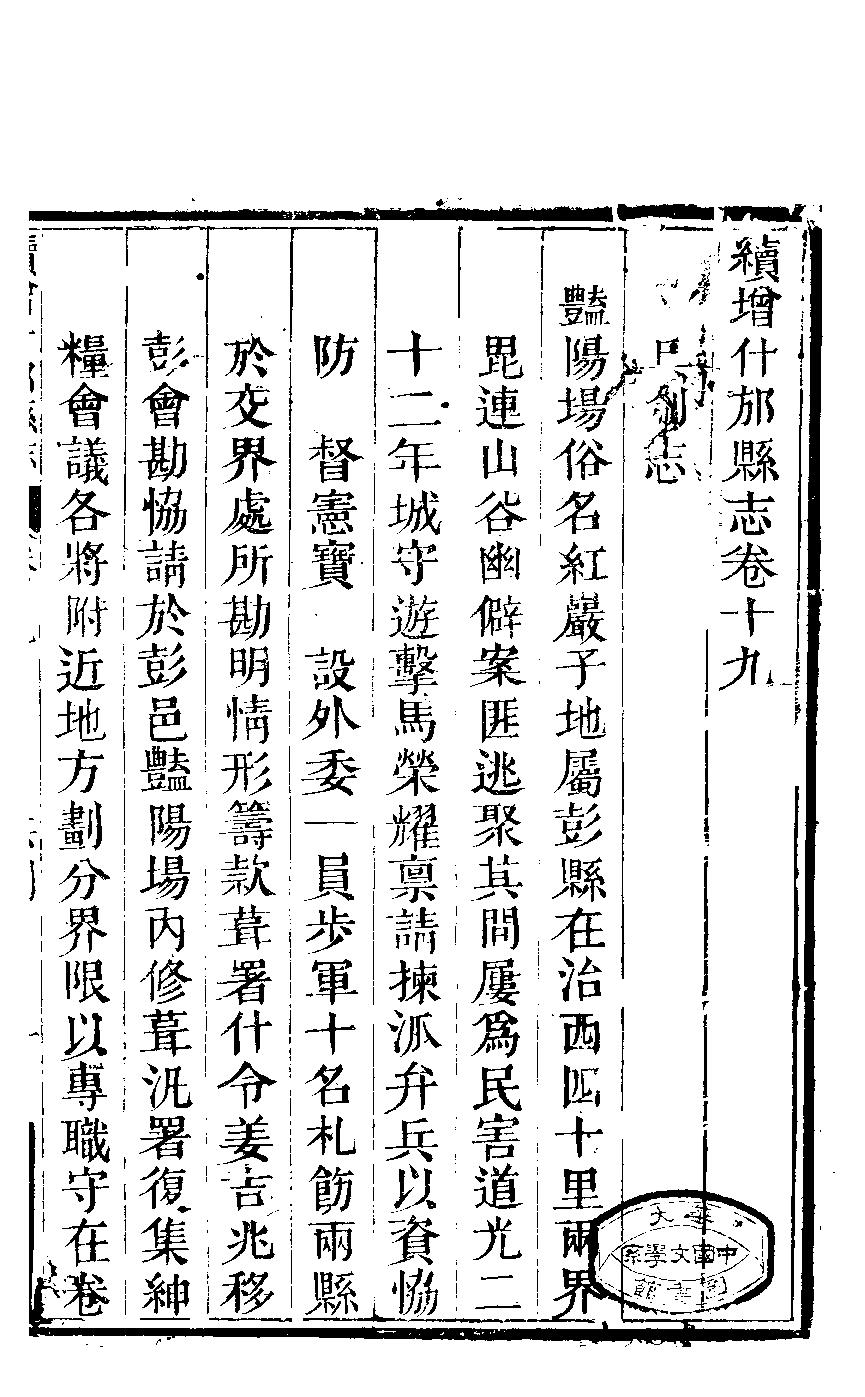 續增什邡縣志卷十九
志
豔陽場俗名紅巖子地屬彭縣在治西四十里兩界
毘連山谷幽僻案匪逃聚其間屢爲民害道光二
十二年城守遊擊馬榮耀禀請揀派弁兵以資恊
防　督憲寶　設外委一員步軍十名札飭兩縣
於交界處所勘明情形籌款葺署什令姜吉兆移
彭會勘恊請於彭邑豔陽場内修葺汛署復集紳
糧會議各將附近地方劃分界限以專職守在卷
中國文學系